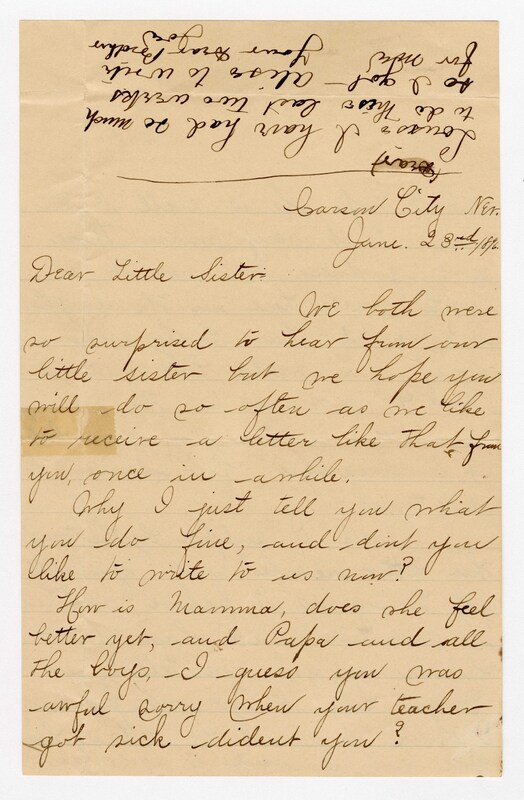 Carson City Nev.
June. 23rd/96
Dear Little Sister:
We both were
so surprised to hear from our
little sister but we hope you
will do so often as we like
to receive a letter like that from
you, once in awhile.
Why I just tell you what
you do fine, and dont you
like to write to us now?
How is Mamma, does she feel
better yet, and Papa and all
the boys, I guess you was
awful sorry when your teacher
got sick dident you?
(Dear)
I have had so much
to do this last two weeks
so I got to write
for me
Your Dear Brother
Joe